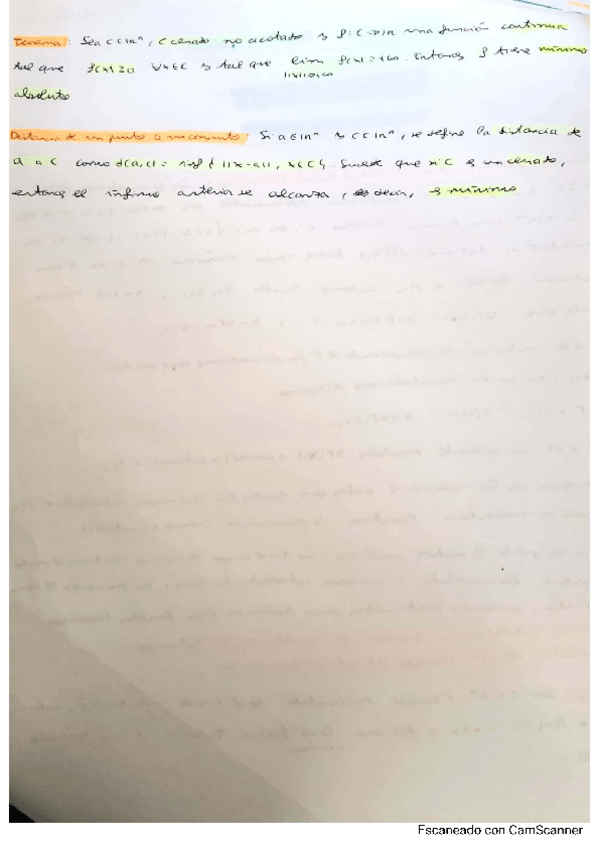 Teorema: Sea C ⊂ ℝⁿ, C cerrado no acotado y f: C → ℝ una función continua
tal que f(x) ≥ 0 ∀x ∈ C y tal que lim f(x) = +∞. Entonces f tiene mínimo
||x||→+∞
absoluto
Distancia de un punto a un conjunto: Si a ∈ ℝⁿ y C ⊂ ℝⁿ, se define la distancia de
a a C como d(a,C) = inf { ||x-a||, x ∈ C }. Sucede que si C es un cerrado,
entonces el ínfimo anterior se alcanza, es decir, es mínimo
Escaneado con CamScanner